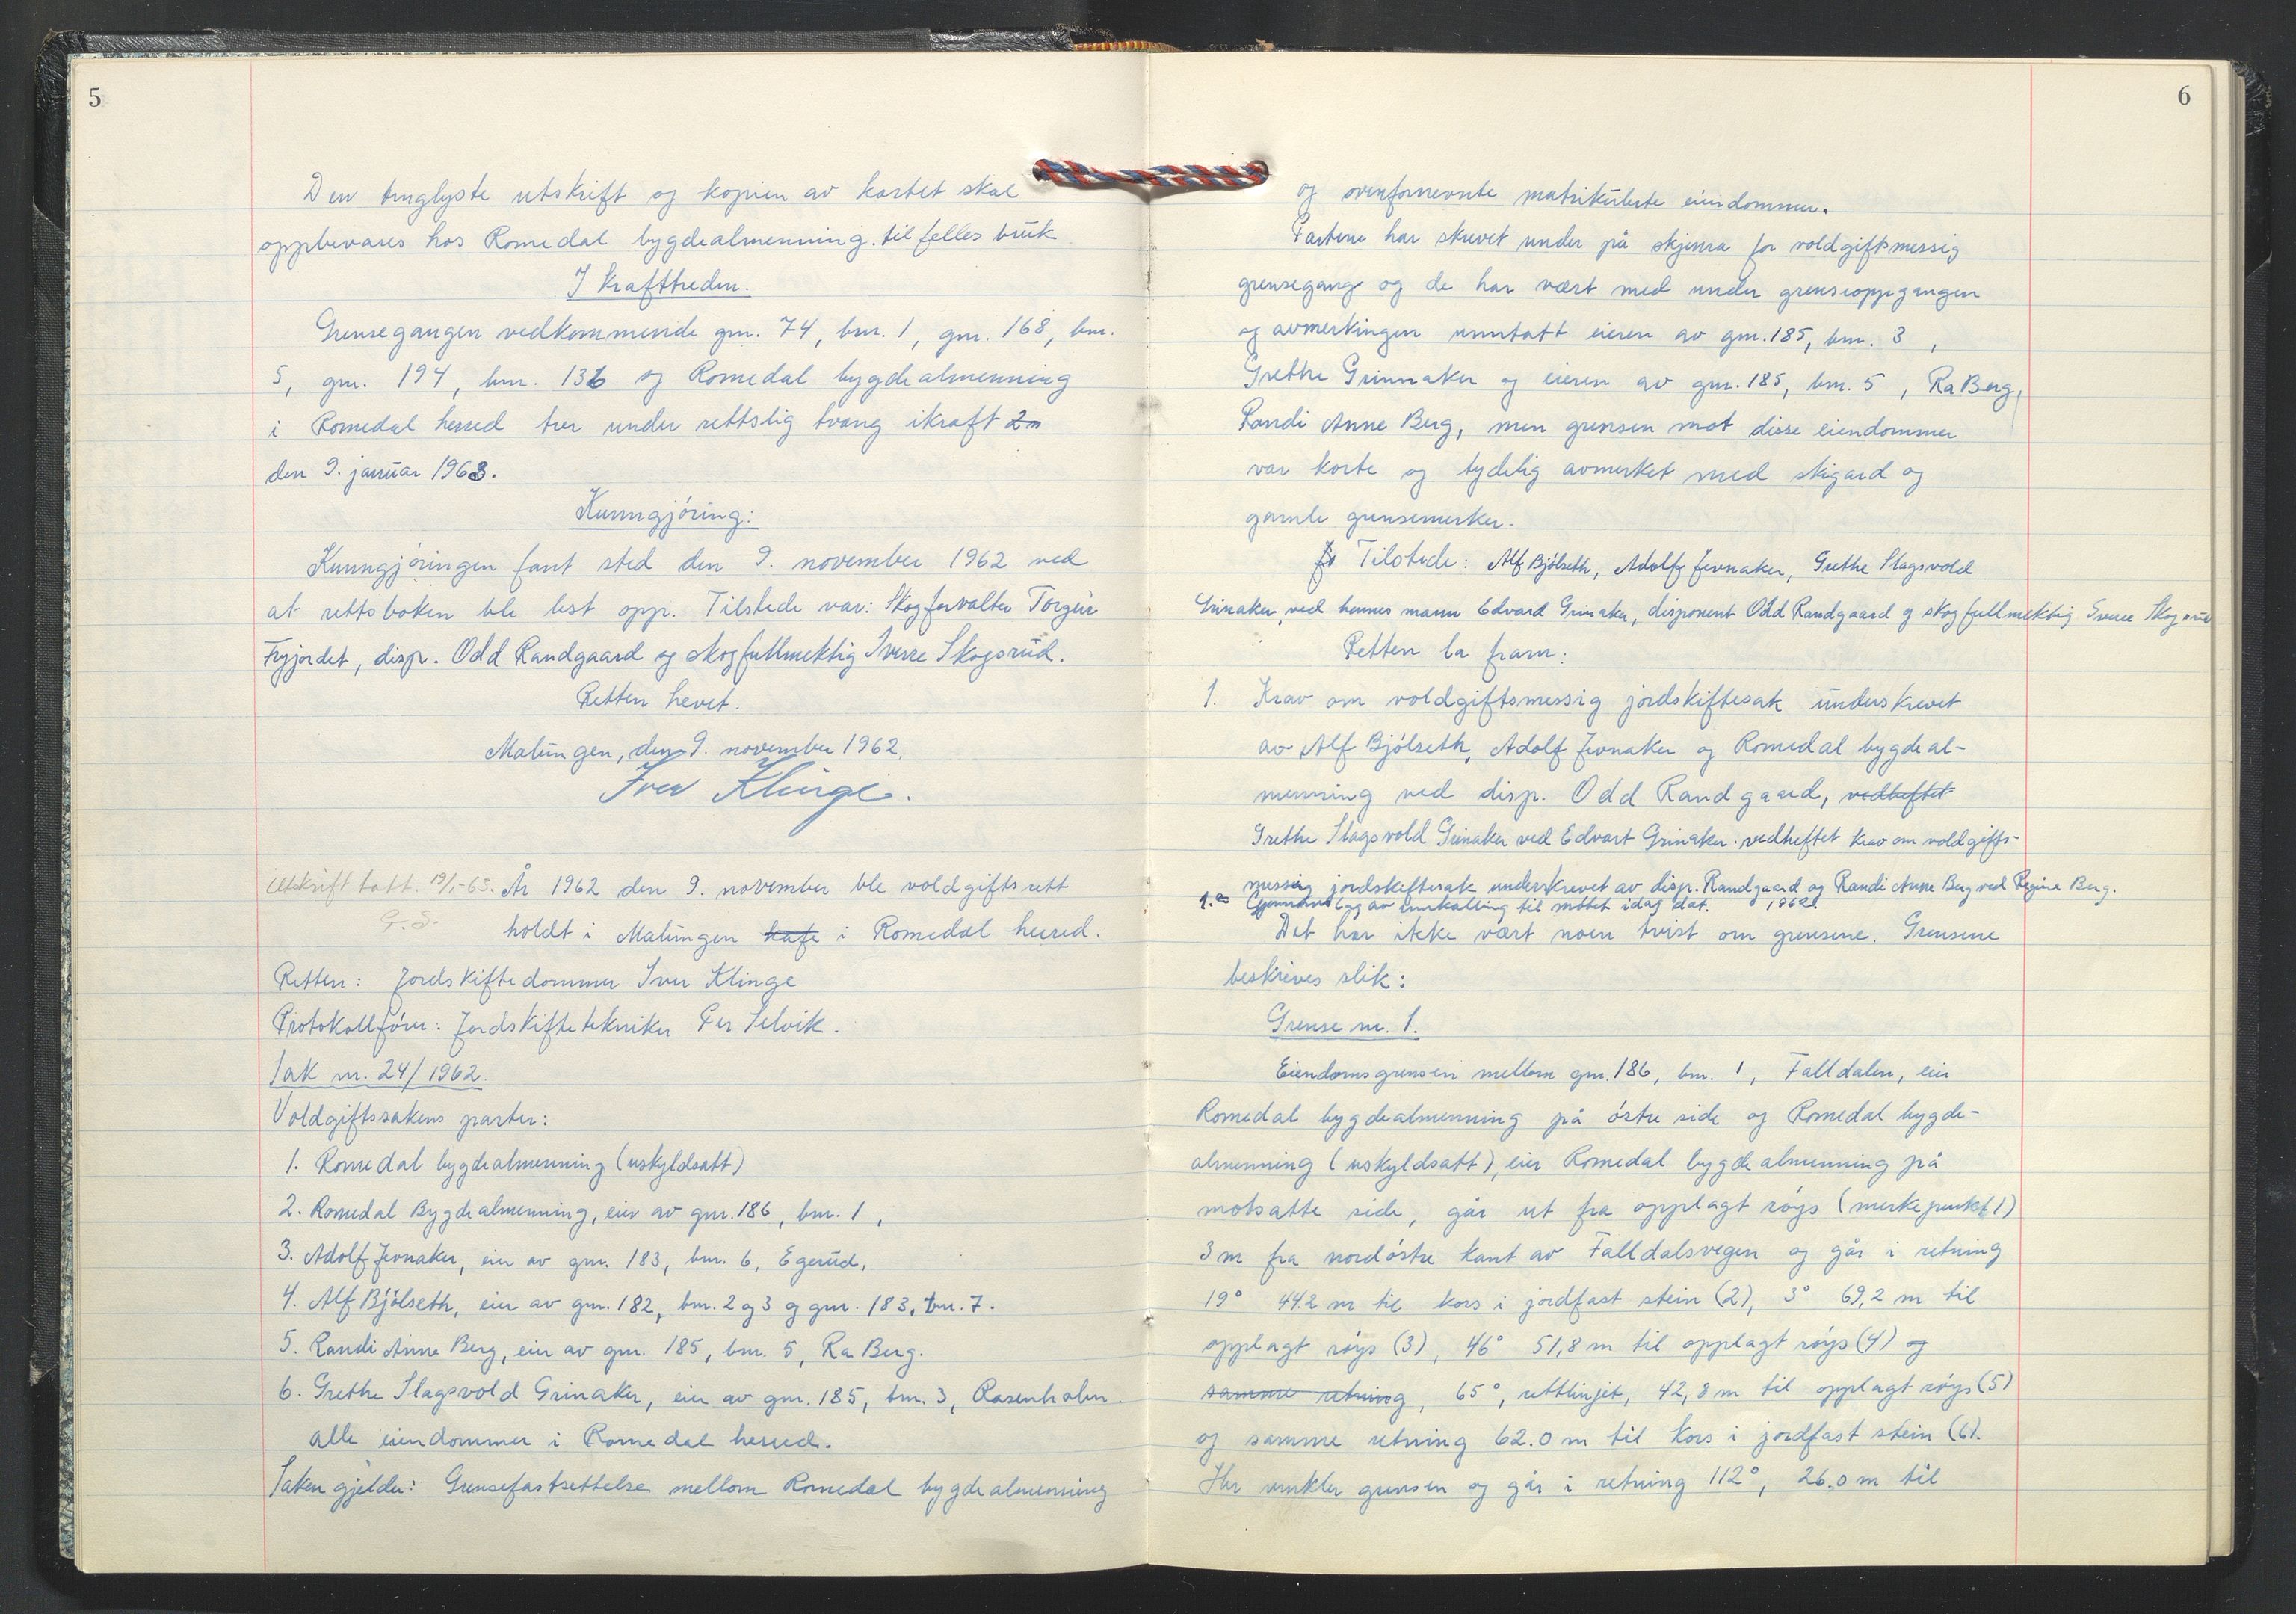 5
Den tinglyste utskrift og kopien av kartet skal
oppbevares hos Romedal bygdealmenning til felles bruk
I krafttreden.
Grensegangen vedkommende gnr. 74, bnr. 1, gnr. 168, bnr.
5, gnr. 194, bnr. 136 og Romedal bygdealmenning
i Romedal herred trer under rettslig tvang ikraft
den 9. januar 1963.
Kunngjöring:
Kunngjöringen fant sted den 9. november 1962 ved
at rettsboken ble lest opp. Tilstede var: Skogforvalter Torgeir
Fryjordet, disp. Odd Randgaard og skogfullmektig Sverre Skogsrud.
Retten hevet.
Malungen, den 9. november 1962.
Iver Klinge.
Utskrift tatt. 19/1-63. År 1962 den 9. november ble voldgiftsrett
G.S. holdt i Malungen kafe i Romedal herred.
Retten: Jordskiftedommer Iver Klinge
Protokollförer: Jordskiftetekniker Per Selvik.
Sak nr. 24/1962
Voldgiftssakens parter:
1. Romedal bygdealmenning (uskyldsatt)
2. Romedal Bygdealmenning, eier av gnr. 186, bnr. 1,
3. Adolf Jevnaker, eier av gnr. 183, bnr. 6, Egerud,
4. Alf Bjölseth, eier av gnr. 182, bnr. 2 og 3 og gnr. 183, bnr. 7.
5. Randi Anne Berg, eier av gnr. 185, bnr. 5, Ra Berg.
6. Grethe Slagsvold Grinaker, eier av gnr. 185, bnr. 3, Rasenholm.
alle eiendommer i Romedal herred.
Saken gjelder: Grensefastsettelse mellom Romedal bygdealmenning
6
og ovenfornevnte matrikulerte eiendommer.
Partene har skrevet under på skjema for voldgiftsmessig
grensegang og de har vært med under grenseoppgangen
og avmerkingen unntatt eieren av gnr. 185, bnr. 3,
Grethe Grinnaker og eieren av gnr. 185, bnr. 5, Ra Berg,
Randi Anne Berg, men grensen mot disse eiendommer
var korte og tydelig avmerket med skigard og
gamle grensemerker.
Tilstede: Alf Bjölseth, Adolf Jevnaker, Grethe Slagsvold
Grinaker, ved hennes mann Edvard Grinaker, disponent Odd Randgaard og skogfullmektig Sverre Skogsrud
Retten la fram:
1. Krav om voldgiftsmessig jordskiftesak underskrevet
av Alf Bjölseth, Adolf Jevnaker og Romedal bygdeal-
menning ved disp. Odd Randgaard, vedheftet
Grethe Slagsvold Grinaker ved Edvart Grinaker. vedheftet krav om voldgifts-
messig jordskiftesak underskrevet av disp. Randgaard og Randi Anne Berg ved Regine Berg.
1.a Gjennomslag av innkalling til møtet idag dat. 1962.
Det har ikke vært noen tvist om grensene. Grensene
beskrives slik:
Grense nr. 1.
Eiendomsgrensen mellom gnr. 186, bnr. 1, Falldalen, eier
Romedal bygdealmenning på östre side og Romedal bygde-
almenning (uskyldsatt), eier Romedal bygdealmenning på
motsatte side, går ut fra opplagt röys (merkepunkt 1)
3 m fra nordöstre kant av Falldalsvegen og går i retning
19° 44.2 m til kors i jordfast stein (2), 3° 69,2 m til
opplagt röys (3), 46° 51,8 m til opplagt röys (4) og
samme retning, 65°, rettlinjet, 42,8 m til opplagt röys (5)
og samme retning 62.0 m til kors i jordfast stein (6).
Her vinkler grensen og går i retning 112°, 26.0 m til